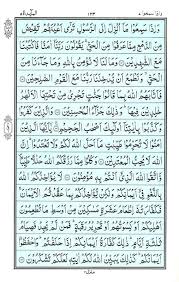 وَاِذَا سَمِعُوْا ٧ ١٢٣ الْمَآئِدَة ٥
وَاِذَا سَمِعُوْا مَآ اُنْزِلَ اِلَى الرَّسُوْلِ تَرٰٓى اَعْيُنَهُمْ تَفِيْضُ
مِنَ الدَّمْعِ مِمَّا عَرَفُوْا مِنَ الْحَقِّ ۚ يَقُوْلُوْنَ رَبَّنَآ اٰمَنَّا فَاكْتُبْنَا
مَعَ الشّٰهِدِيْنَ ۝ وَمَا لَنَا لَا نُؤْمِنُ بِاللّٰهِ وَمَا جَآءَنَا مِنَ
الْحَقِّ ۙ وَنَطْمَعُ اَنْ يُّدْخِلَنَا رَبُّنَا مَعَ الْقَوْمِ الصّٰلِحِيْنَ ۝
فَاَثَابَهُمُ اللّٰهُ بِمَا قَالُوْا جَنّٰتٍ تَجْرِيْ مِنْ تَحْتِهَا الْاَنْهٰرُ
خٰلِدِيْنَ فِيْهَا ۭ وَذٰلِكَ جَزَآءُ الْمُحْسِنِيْنَ ۝ وَالَّذِيْنَ كَفَرُوْا
وَكَذَّبُوْا بِاٰيٰتِنَآ اُولٰٓئِكَ اَصْحٰبُ الْجَحِيْمِ ۝ يٰٓاَيُّهَا الَّذِيْنَ
اٰمَنُوْا لَا تُحَرِّمُوْا طَيِّبٰتِ مَآ اَحَلَّ اللّٰهُ لَكُمْ وَلَا تَعْتَدُوْا ۭ اِنَّ
اللّٰهَ لَا يُحِبُّ الْمُعْتَدِيْنَ ۝ وَكُلُوْا مِمَّا رَزَقَكُمُ اللّٰهُ حَلٰلًا
طَيِّبًا ۠ وَّاتَّقُوا اللّٰهَ الَّذِيْٓ اَنْتُمْ بِهٖ مُؤْمِنُوْنَ ۝ لَا يُؤَاخِذُكُمُ اللّٰهُ
بِاللَّغْوِ فِيْٓ اَيْمَانِكُمْ وَلٰكِنْ يُّؤَاخِذُكُمْ بِمَا عَقَّدْتُّمُ الْاَيْمَانَ ۚ
فَكَفَّارَتُهٗٓ اِطْعَامُ عَشَرَةِ مَسٰكِيْنَ مِنْ اَوْسَطِ مَا تُطْعِمُوْنَ
اَهْلِيْكُمْ اَوْ كِسْوَتُهُمْ اَوْ تَحْرِيْرُ رَقَبَةٍ ۭ فَمَنْ لَّمْ يَجِدْ فَصِيَامُ
ثَلٰثَةِ اَيَّامٍ ۭ ذٰلِكَ كَفَّارَةُ اَيْمَانِكُمْ اِذَا حَلَفْتُمْ ۭ وَاحْفَظُوْٓا
اَيْمَانَكُمْ ۭ كَذٰلِكَ يُبَيِّنُ اللّٰهُ لَكُمْ اٰيٰتِهٖ لَعَلَّكُمْ تَشْكُرُوْنَ ۝